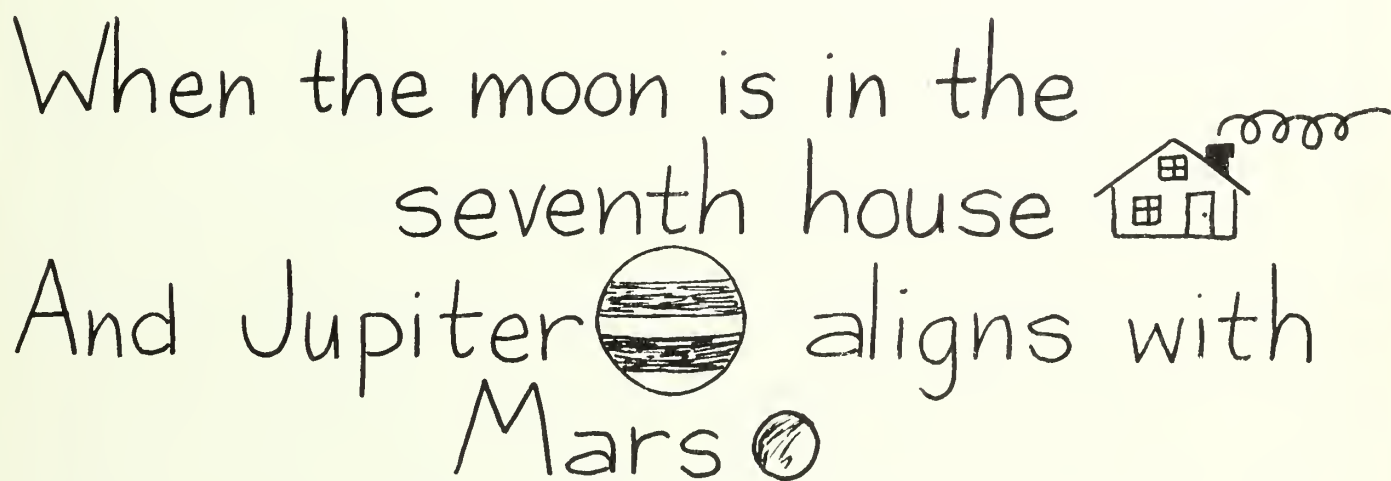 When the moon is in the
seventh house
And Jupiter aligns with
Mars